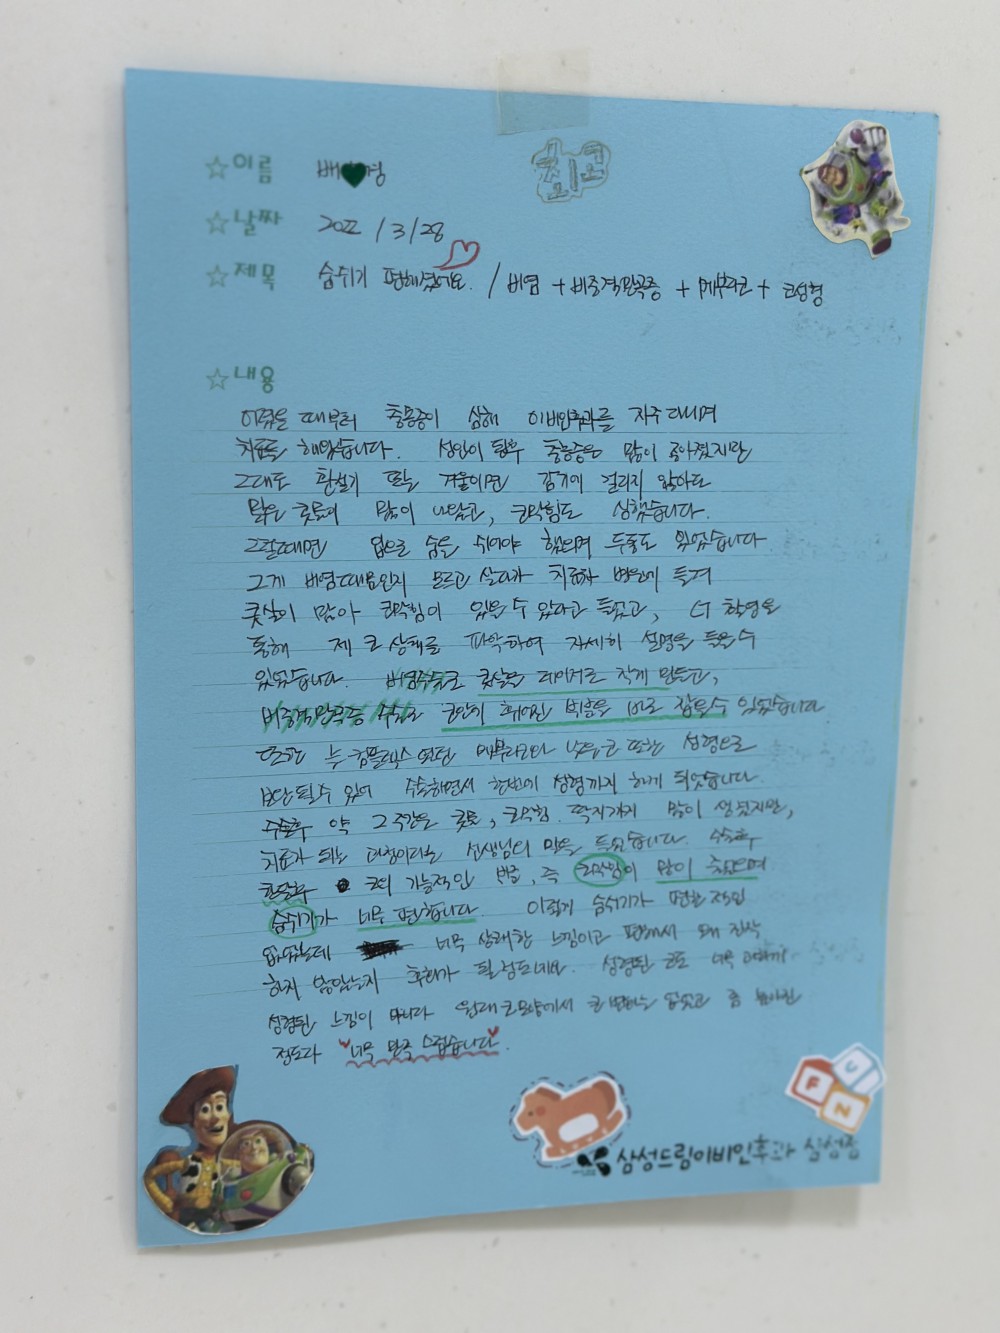 최고
☆이름 배♥경
☆날짜 2022 / 3 / 28
☆제목 숨쉬기 편해졌어요. / 비염 + 비중격만곡증 + 매부리코 + 코성형
☆내용
어렸을 때부터 축농증이 심해 이비인후과를 자주 다니며
치료를 해왔습니다. 성인이 된후 축농증은 많이 좋아졌지만
그래도 환절기 또는 겨울이면 감기에 걸리지 않아도
맑은 콧물이 많이 나왔고, 코막힘도 심했습니다.
그럴때면 입으로 숨을 쉬어야 했으며 두통도 있었습니다.
그게 비염때문인지 모르고 살다가 치료차 병원에 들려
콧살이 많아 코막힘이 있을 수 있다고 들었고, CT 촬영을
통해 제 코 상태를 파악하여 자세히 설명을 들을 수
있었습니다. 비염수술로 콧살을 레이저로 작게 만들고,
비중격만곡증 수술로 코안의 휘어진 벽들을 바로 잡을 수 있었습니다
또한 늘 컴플렉스였던 매부리코와 낮은 코 또한 성형으로
보완될 수 있어 수술하면서 한번에 성형까지 하게 되었습니다.
수술후 약 2주간은 콧물, 코막힘, 딱지까지 많이 생겼지만,
치료가 되는 과정이라는 선생님의 말을 들었습니다. 수술후
한달후 코의 기능적인 부분, 즉 코막힘이 많이 줄었으며
숨쉬기가 너무 편합니다. 이렇게 숨쉬기가 편한 적이
없었는데 너무 상쾌한 느낌이고 편해서 왜 진작
하지 않았는지 후회가 될 정도네요. 성형된 코도 너무 과하게
성형된 느낌이 아니라 원래 코모양에서 큰 변화는 없었고 좀 높아진
정도라 "너무 만족스럽습니다".
FUN
삼성드림이비인후과 삼성점